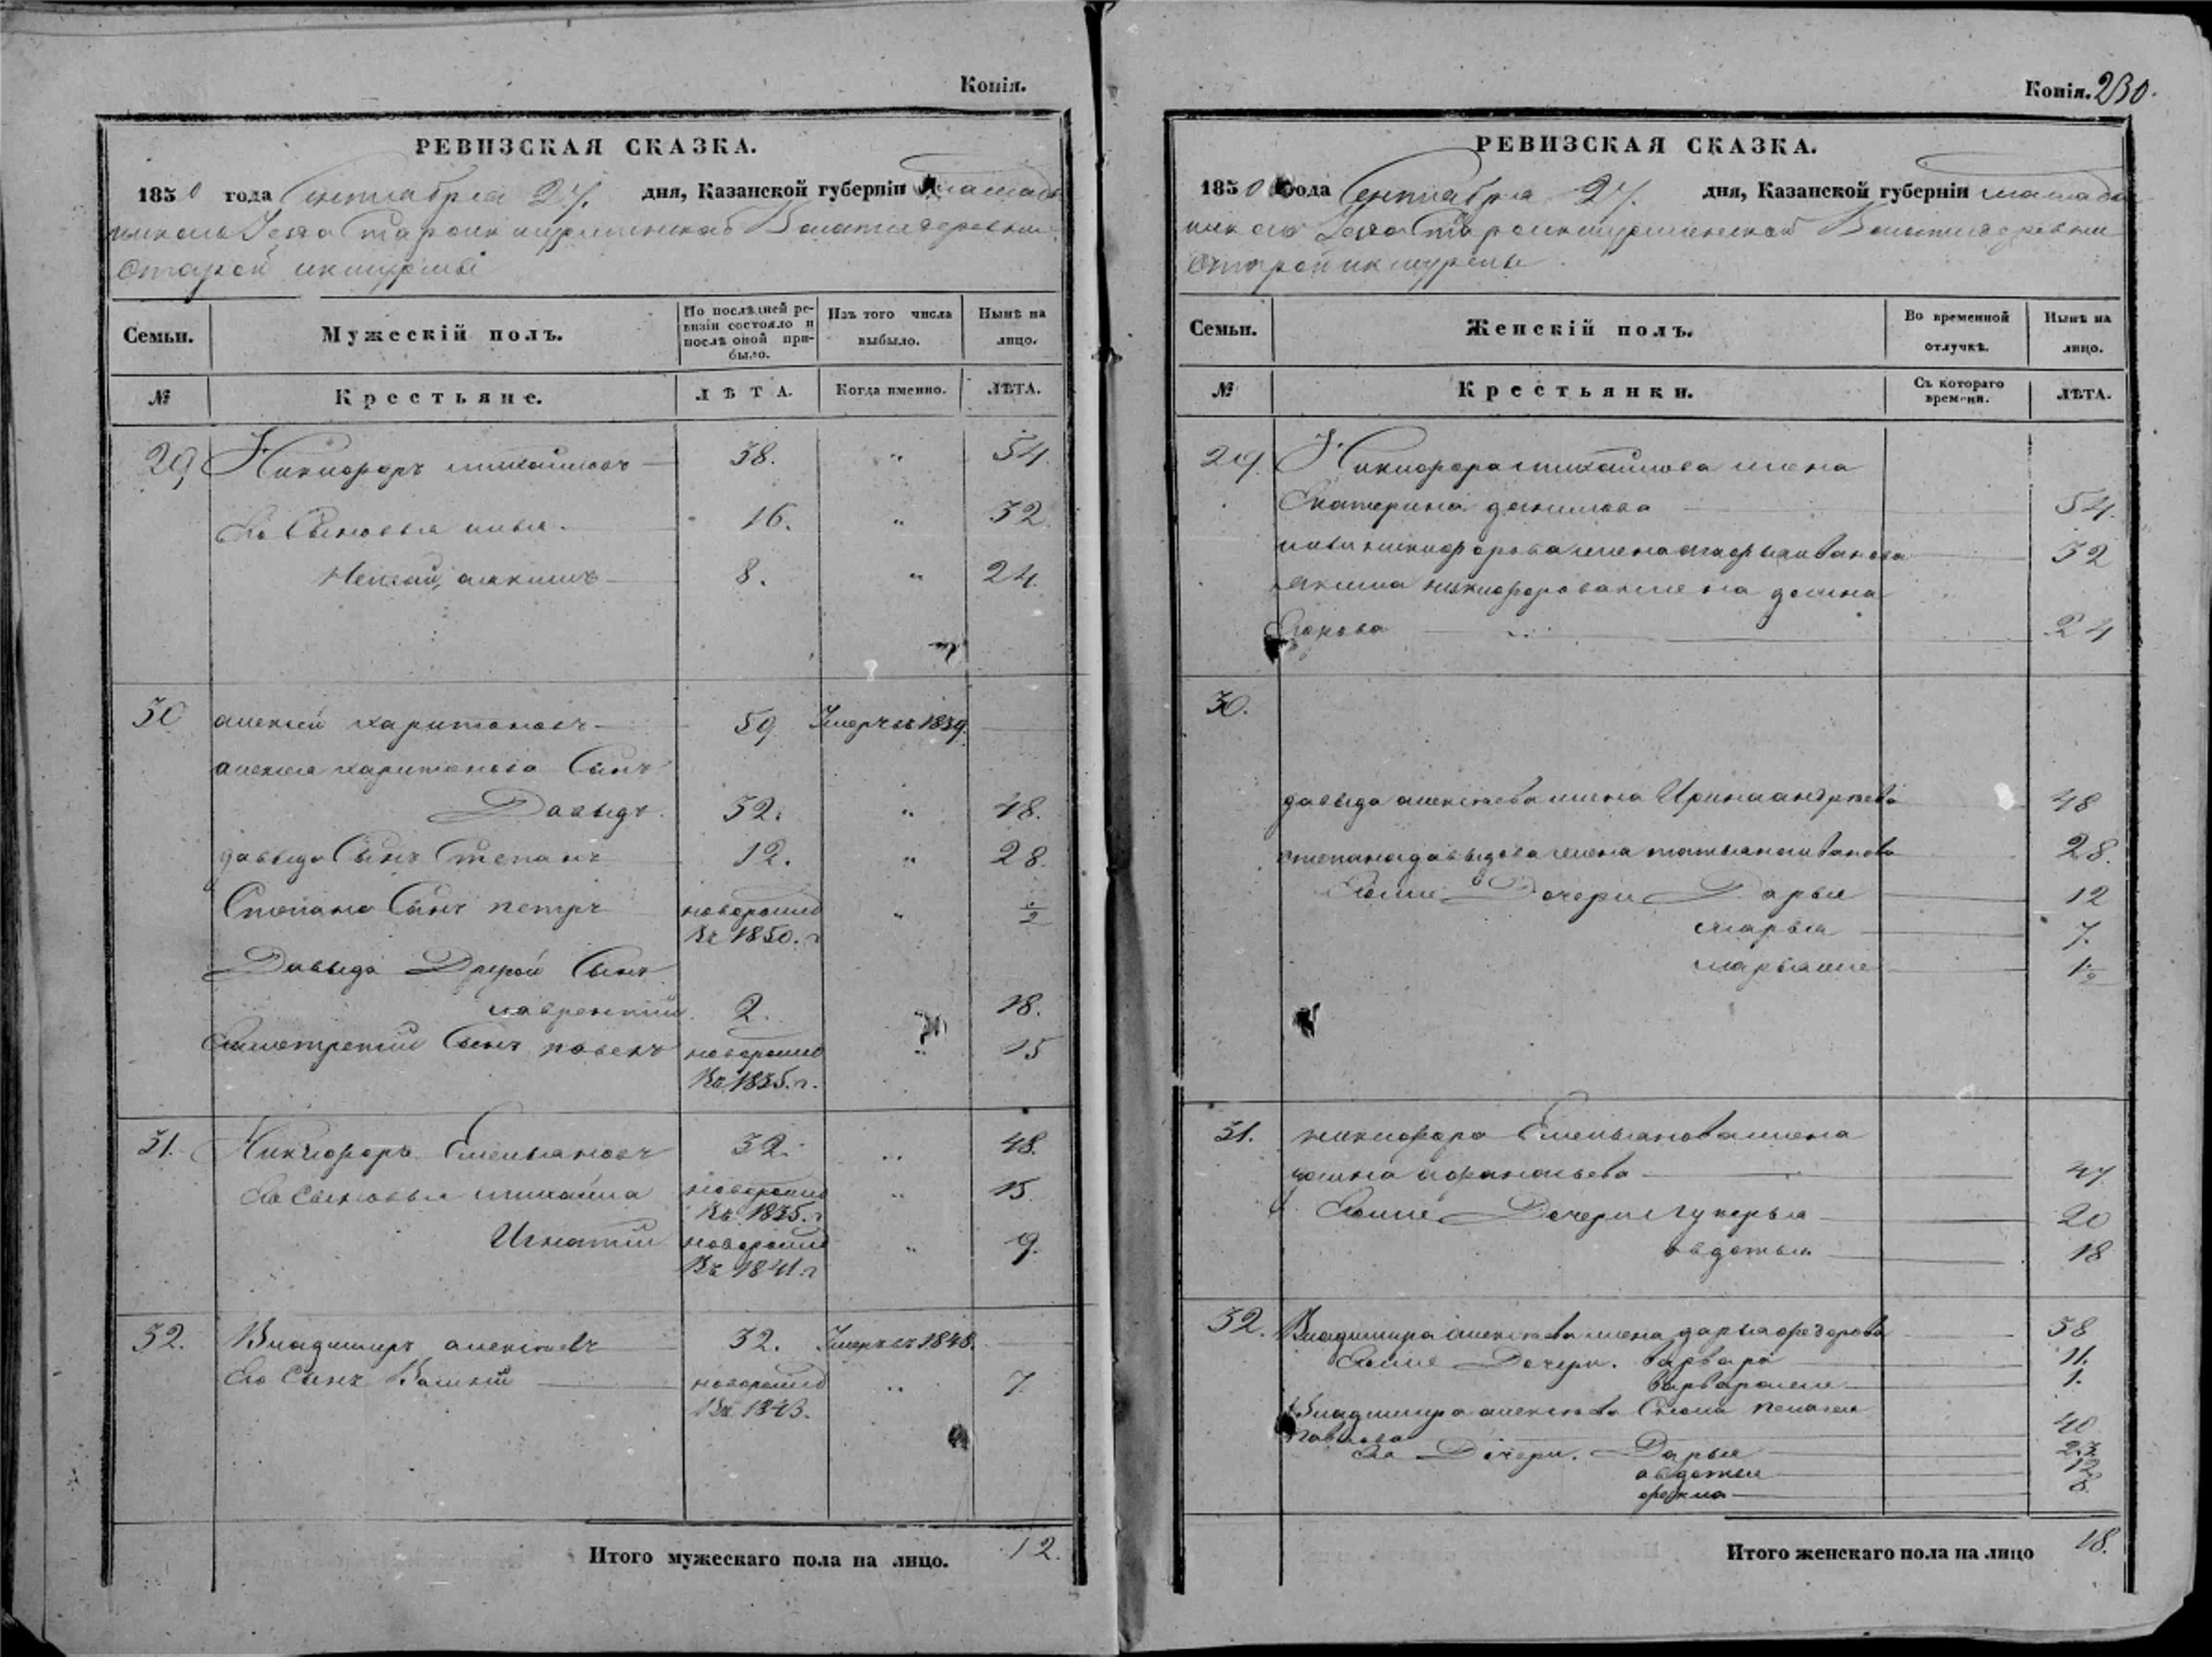 Копія.
РЕВИЗСКАЯ СКАЗКА.
1850 года Сентября 27. дня, Казанской губерніи Мамады
шскаго Уезда Староикшурминской Волости деревни
Старой икшурмы
Семьи.
Мужескій полъ.
По послѣдней ре-
визіи состояло и
послѣ оной при-
было.
Изъ того числа
выбыло.
Нынѣ на
лицо.
№
Крестьяне.
ЛѢТА.
Когда именно.
ЛѢТА.
29 Никифоръ михайловъ 38. " 54.
Его Сыновья 16. " 32
якимъ 8. " 24.
30 алексей харитоновъ 59 Умеръ въ 1839.
алексея харитонова Сынъ
Давыдъ. 32. " 48.
давыда Сынъ Степанъ 12. " 28.
Степана Сынъ петръ новорожд " 1/2
въ 1850. г
Давыда Другой Сынъ
лаврентий 2. " 18.
Сынъ павелъ новорожд " 15
въ 1835. г.
31. Никифоръ Емельяновъ 32. " 48.
Его Сыновья михайла новорожд " 15
въ 1835. г
Игнатий новорожд " 9.
въ 1841. г
32. Владимиръ алексеевъ 32. Умеръ въ 1848.
Его Сынъ новорожд " 7
въ 1843.
Итого мужескаго пола на лицо. 12.
Копія. 230.
РЕВИЗСКАЯ СКАЗКА.
1850 года Сентября 27. дня, Казанской губерніи мамады
шскаго Уезда Староикшурминской Волости деревни
Старой икшурмы.
Семьи.
Женскій полъ.
Во временной
отлучкѣ.
Нынѣ на
лицо.
№
Крестьянки.
Съ котораго
времени.
ЛѢТА.
29. Никифора михайлова жена
Екатерина данилова 54.
никифорова жена иванова 32
якима никифорова жена домна
Егорова 24
30.
давыда алексеева жена Ирина андреева 48
степана давыдова жена татьяна иванова 28.
Ихъ Дочери Дарья 12
марья 7.
марья же 1 1/2
31. никифора Емельянова жена
домна афанасьева 47
Дочери лукерья 20
авдотья 18
32. Владимира алексеева жена дарья федорова 38
Дочери. варвара 11.
варвара же 1.
Владимира алексеева Сноха пелагея
павлова 40
Ея Дочери. Дарья 23
авдотья 12
фекла 8.
Итого женскаго пола на лицо 18.